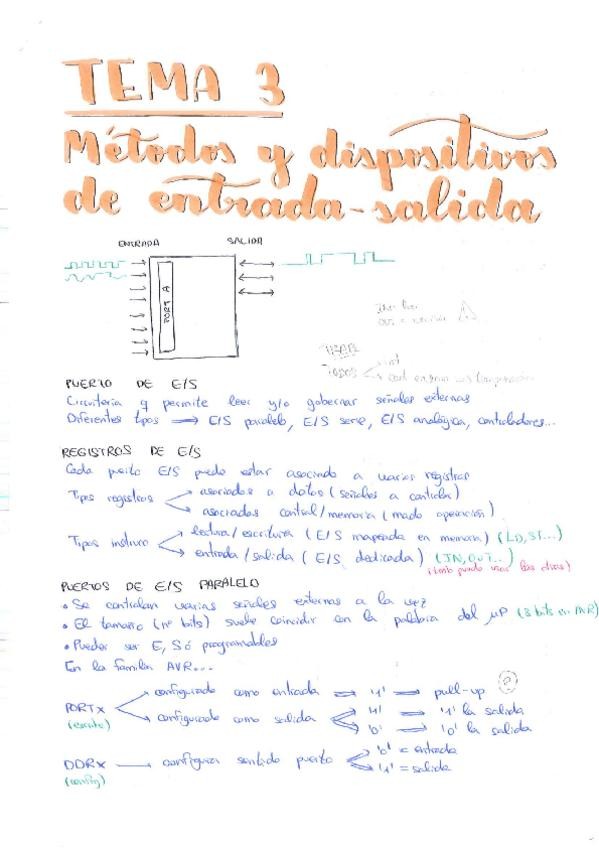 TEMA 3
Métodos y dispositivos
de entrada-salida
ENTRADA SALIDA
PORT A
PUERTO DE E/S
Circuitería q permite leer y/o gobernar señales externas
Diferentes tipos ⟹ E/S paralelo, E/S serie, E/S analógica, controladores...
REGISTROS DE E/S
Cada puerto E/S puede estar asociado a varios registros
Tipos registros
asociados a datos (señales a controlar)
asociados control/memoria (modo operación)
Tipos instrucc
lectura/escritura (E/S mapeada en memoria) (LD, ST...)
entrada/salida (E/S dedicada) (IN, OUT...)
(Amb puede usar las dos)
PUERTOS DE E/S PARALELO
• Se controlan varias señales externas a la vez
• El tamaño (nº bits) suele coincidir con la palabra del µP (8 bits en AVR)
• Pueden ser E, S ó programables
En la familia AVR...
PORTx
configurado como entrada ⟹ '1' → pull-up
configurado como salida
'1' → '1' la salida
'0' → '0' la salida
DDRx → configura sentido puerto
'0' = entrada
'1' = salida
(config)